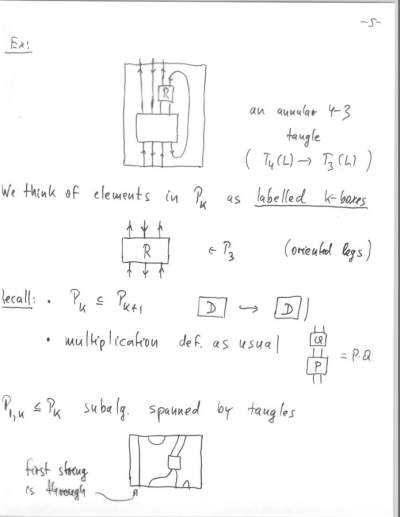 -5-
Ex:
R
an annular 4-3
tangle
( T₄(L) → T₃(L) )
We think of elements in P_k as labelled k-boxes
R ∈ P₃ (oriented legs)
Recall: • P_k ⊆ P_{k+1} D → D
• multiplication def. as usual Q P = P·Q
P_{1,k} ≤ P_k subalg. spanned by tangles
first string
is through